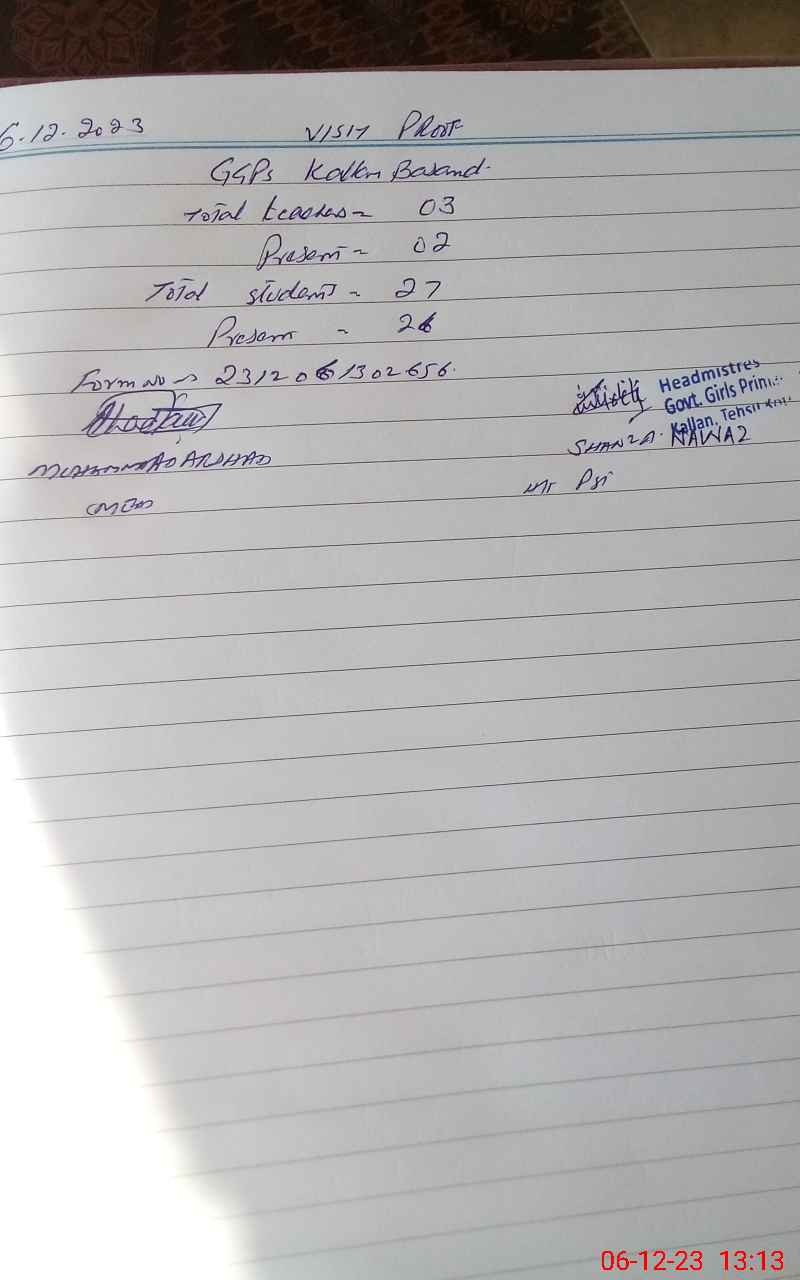 6.12.2023 VISIT PROOF
GGPS Kallan Basand.
Total teachers = 03
Present = 02
Total students = 27
Present = 26
Form No → 2312061302656.
Headmistres
Govt. Girls Prim
Kallan, Tehsil
SHANZA NAWAZ
MUHAMMAD ARSHAD
06-12-23 13:13